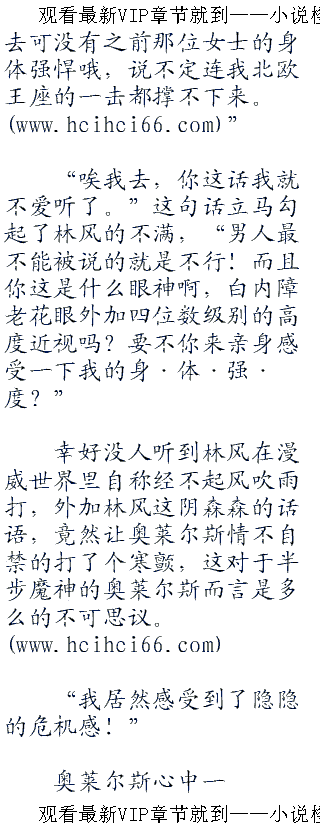 观看最新VIP章节就到——小说检
去可没有之前那位女士的身
体强悍哦，说不定连我北欧
王座的一击都撑不下来。
(www.hcihci66.com)”
“唉我去，你这话我就
不爱听了。”这句话立马勾
起了林风的不满，“男人最
不能被说的就是不行！而且
你这是什么眼神啊，白内障
老花眼外加四位数级别的高
度近视吗？要不你来亲身感
受一下我的身·体·强·
度？”
幸好没人听到林风在漫
威世界里自称经不起风吹雨
打，外加林风这阴森森的话
语，竟然让奥莱尔斯情不自
禁的打了个寒颤，这对于半
步魔神的奥莱尔斯而言是多
么的不可思议。
(www.hcihci66.com)
“我居然感受到了隐隐
的危机感！”
奥莱尔斯心中一
观看最新VIP章节就到——小说检